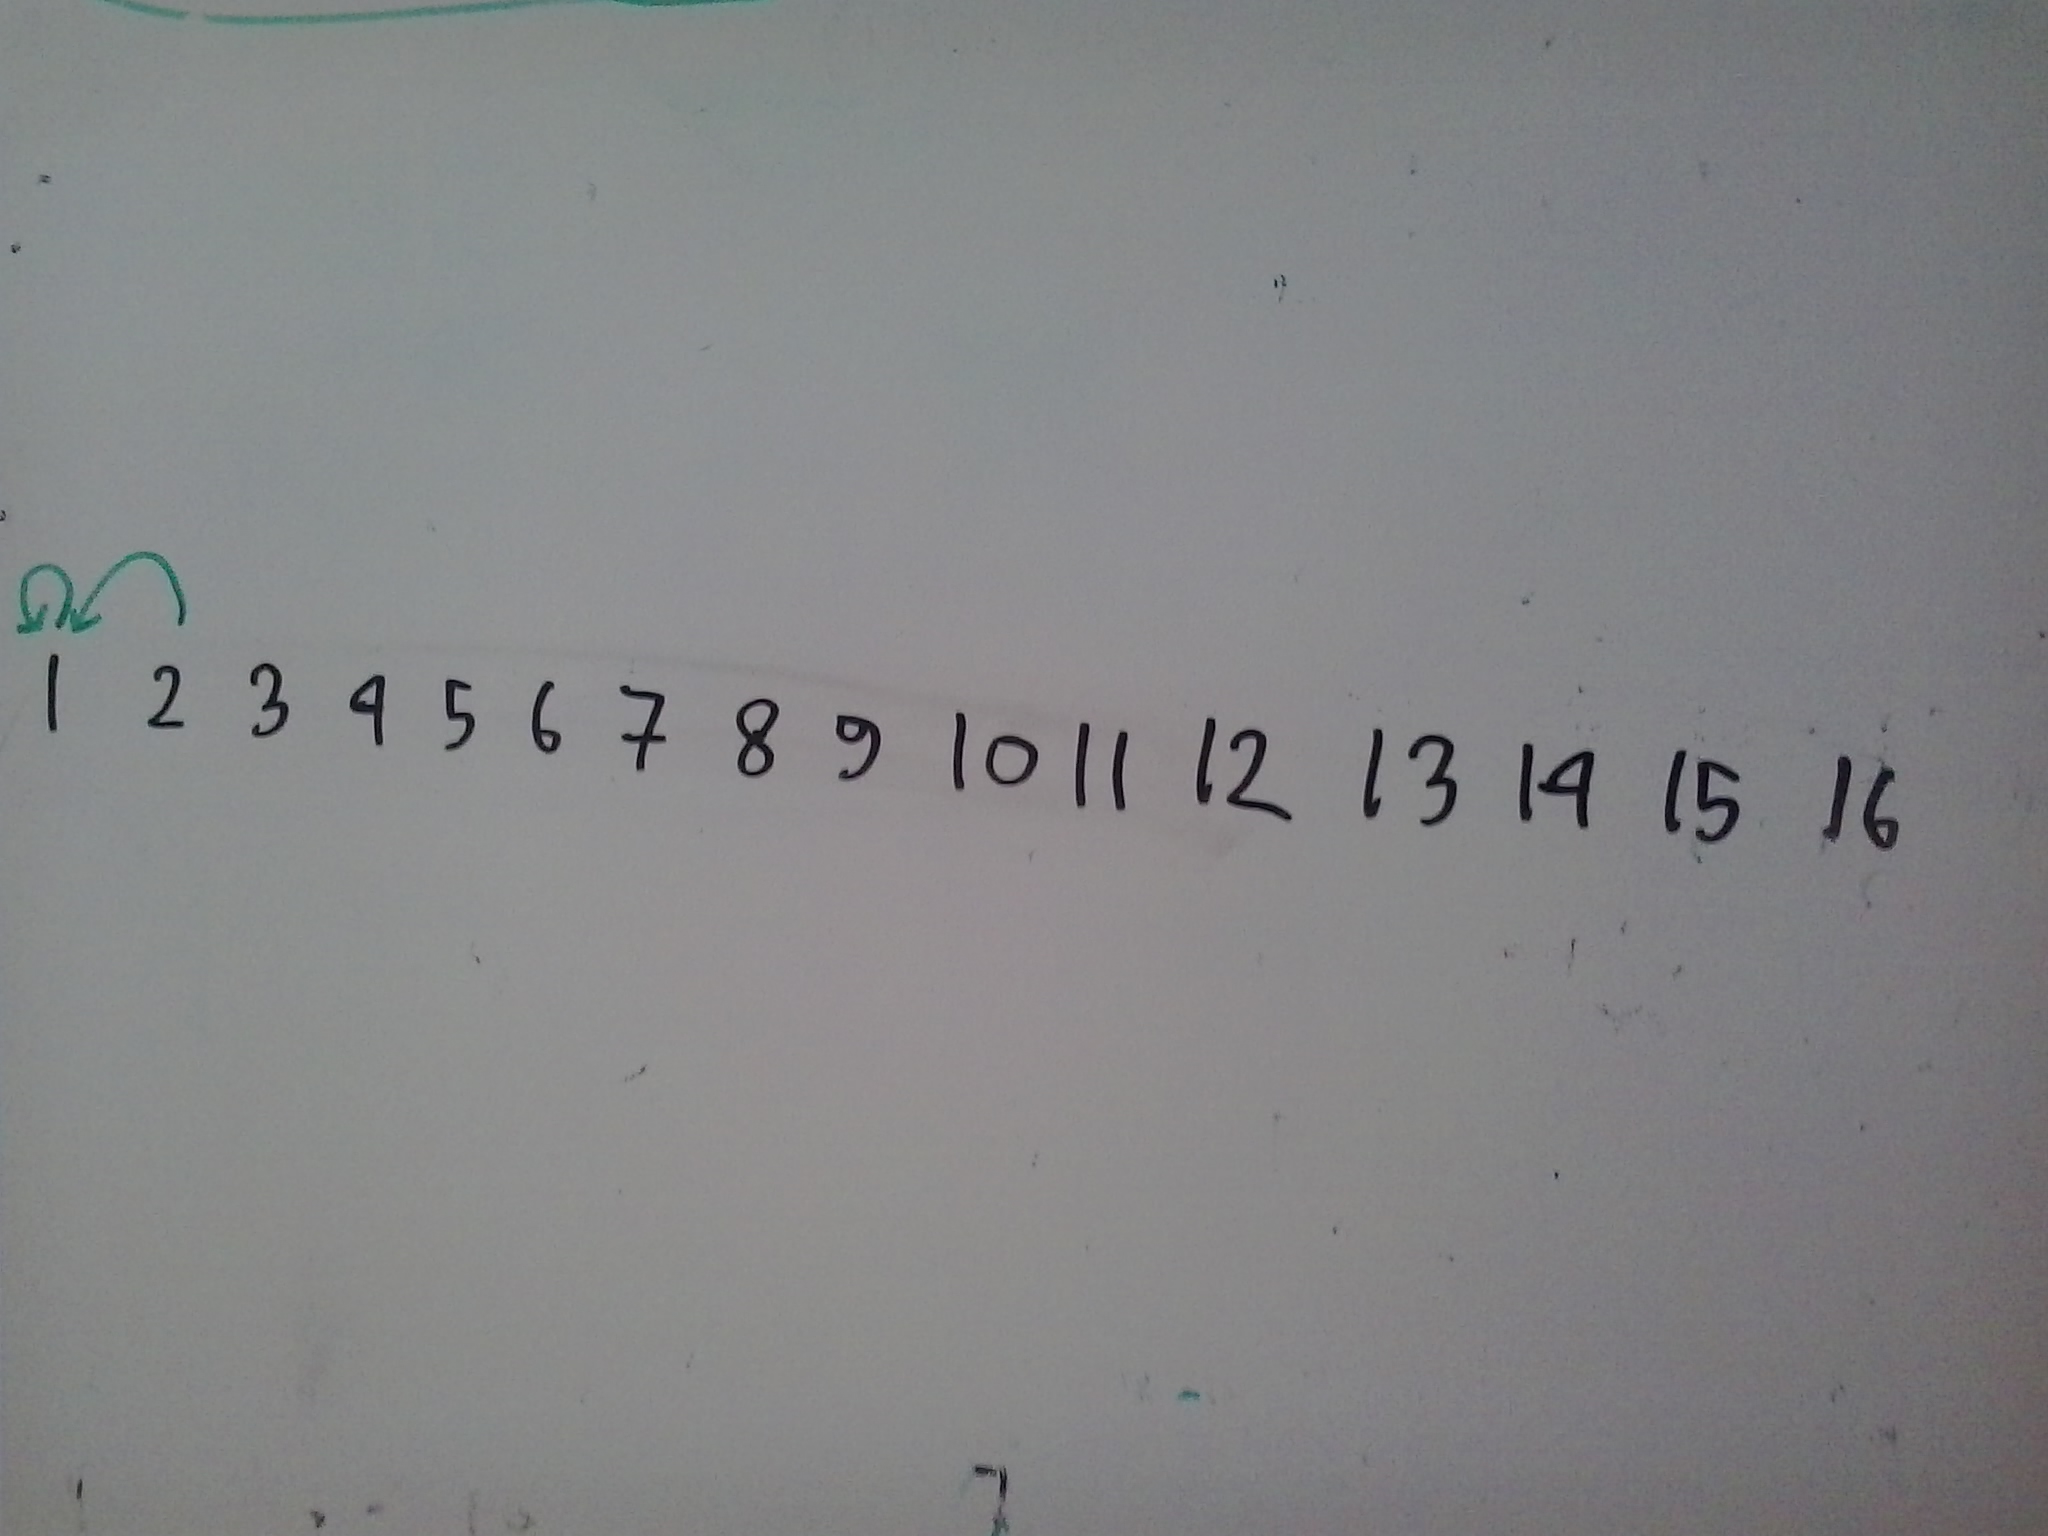 1 2 3 4 5 6 7 8 9 10 11 12 13 14 15 16
7